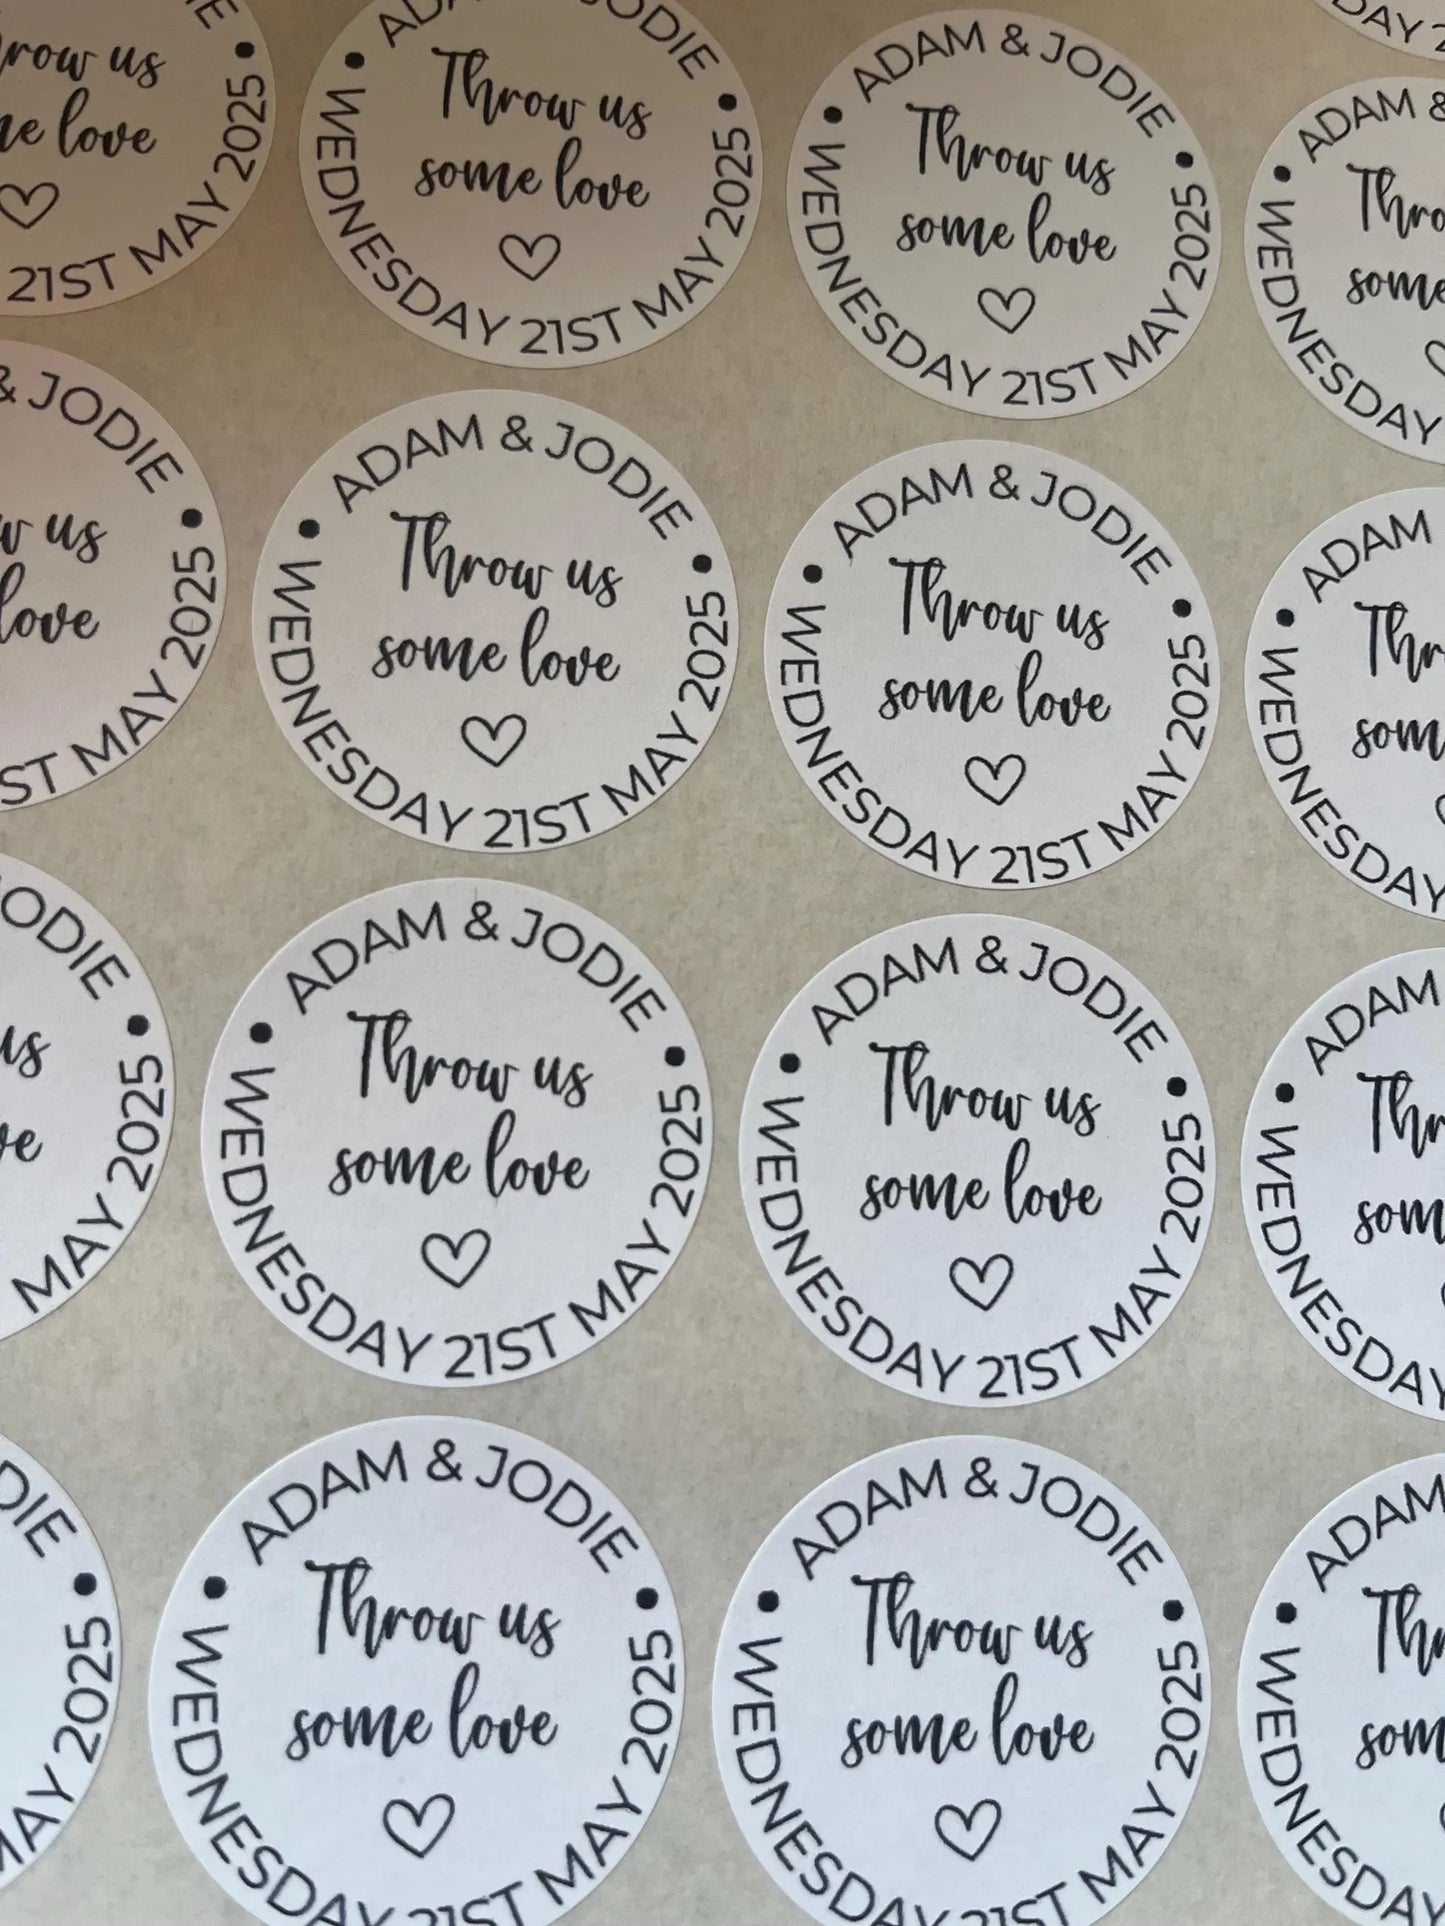 us
love
21ST MAY 2025
JODIE
Throw us
some love
WEDNESDAY 21ST MAY 2025
ADAM & JODIE
Throw us
some love
WEDNESDAY 21ST MAY 2025
ADAM &
some
& JODIE
us
love
MAY 2025
ADAM & JODIE
Throw us
some love
WEDNESDAY 21ST MAY 2025
ADAM & JODIE
Throw us
some love
WEDNESDAY 21ST MAY 2025
ADAM
WEDNESDAY
JODIE
us
MAY 2025
ADAM & JODIE
Throw us
some love
WEDNESDAY 21ST MAY 2025
ADAM & JODIE
Throw us
some love
WEDNESDAY 21ST MAY 2025
ADAM
WEDNESDAY
MAY 2025
ADAM & JODIE
Throw us
some love
WEDNESDAY 21ST MAY 2025
ADAM & JODIE
Throw us
some love
WEDNESDAY 21ST MAY 2025
ADAM